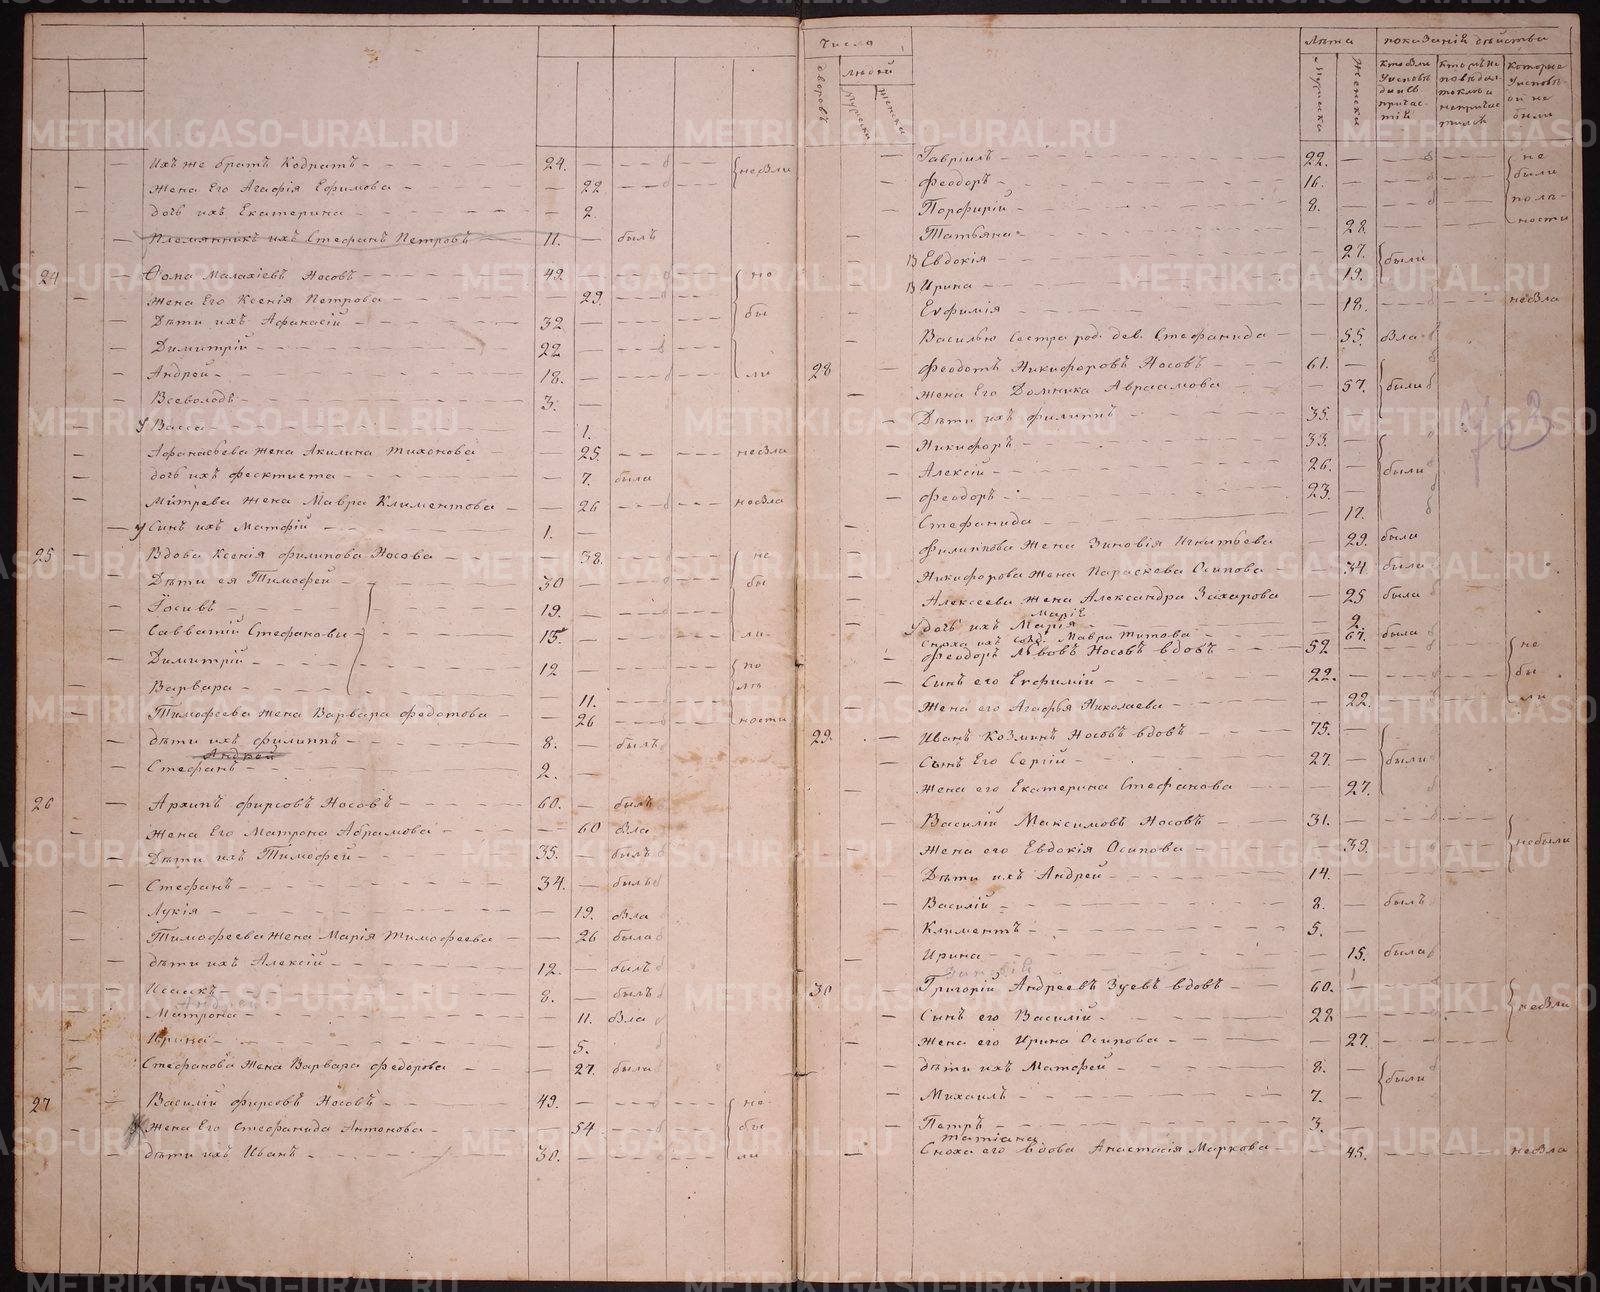 Ихъ же братъ Кодратъ 24. не была
Жена Его Агафія Ефимова 22
дочь ихъ Екатерина 2.
Племянникъ ихъ Стефанъ Петровъ 11. былъ
24 Фома Малахіевъ Носовъ 49. не
Жена Его Ксенія Петрова 29.
Дѣти ихъ Афанасій 32 бы
Димитрій 22
Андрей 18. ли
Всеволодъ 3.
у Васса 1.
Афанасьева жена Акилина Тихонова 25.
дочь ихъ Феоктиста 7. была
Митрева жена Мавра Климентова 26
у Сынъ ихъ Матфій 1.
25 Вдова Ксенія Филипова Носова 38. не
Дѣти ея Тимофей 30 бы
Іосивъ 19.
Савватій Стефановы 15. ли
Димитрій 12 по
Варвара 11. лѣ
Тимофеева жена Варвара Федотова 26 ности
дѣти ихъ Филиппъ 8. былъ
Андрей
Стефанъ 2.
26 Архипъ Фирсовъ Носовъ 60. былъ
Жена Его Матрона Абрамова 60 бла
Дѣти ихъ Тимофей 35. былъ
Стефанъ 34. былъ
Лукія 19. бла
Тимофеева жена Марія Тимофеева 26 была
дѣти ихъ Алексій 12. былъ
Исаакъ 8. былъ
Андрей
Матрона 11. бла
Ирина 5.
Стефанова жена Варвара Федорова 27. была
27 Василій Фирсовъ Носовъ 49. не
Жена Его Стефанида Антонова 54 бы
дѣти ихъ Иванъ 30. ли
Число Лѣта показаніе дѣйства
дворовъ людей мужска женска мужска женска
Гавріилъ 22. не
Феодоръ 16. были
Порфирій 8. по лѣ
Татьяна 28. ности
В Евдокія 27. были
В Ирина 19.
Евфимія 18. небла
Василью сестра род. дев. Стефанида 55. бла
28 Феодотъ Никифоровъ Носовъ 61.
Жена Его Домника Авраамова 57. были
Дѣти ихъ Филиппъ 35.
Никифоръ 33.
Алексій 26. были
Феодоръ 23.
Стефанида 17.
Филиппова жена Зиновія Игнатьева 29. была
Никифорова жена Параскева Осипова 34. была
Алексеева жена Александра Захарова 25 была
Марія
у дочь ихъ Марія 2.
Сноха ихъ Мавра Титова 67. была
Феодоръ Львовъ Носовъ вдовъ 52 не
Сынъ его Ефимій 22. бы
Жена его Агафья Николаева 22. ли
29. Иванъ Козминъ Носовъ вдовъ 75.
Сынъ Его Сергій 27. были
Жена его Екатерина Стефанова 27.
Василій Максимовъ Носовъ 31.
Жена его Евдокія Осипова 39. небыли
Дѣти ихъ Андрей 14.
Василій 8. былъ
Климентъ 5.
Ирина 15. была
30 Григорій Андреевъ Зуевъ вдовъ 60.
Сынъ его Василій 22 небли
Жена его Ирина Осипова 27.
дѣти ихъ Матфей 8.
Михаилъ 7. были
Петръ 3.
Татіана
Сноха его вдова Анастасія Маркова 45. небла
METRIKI.GASO-URAL.RU